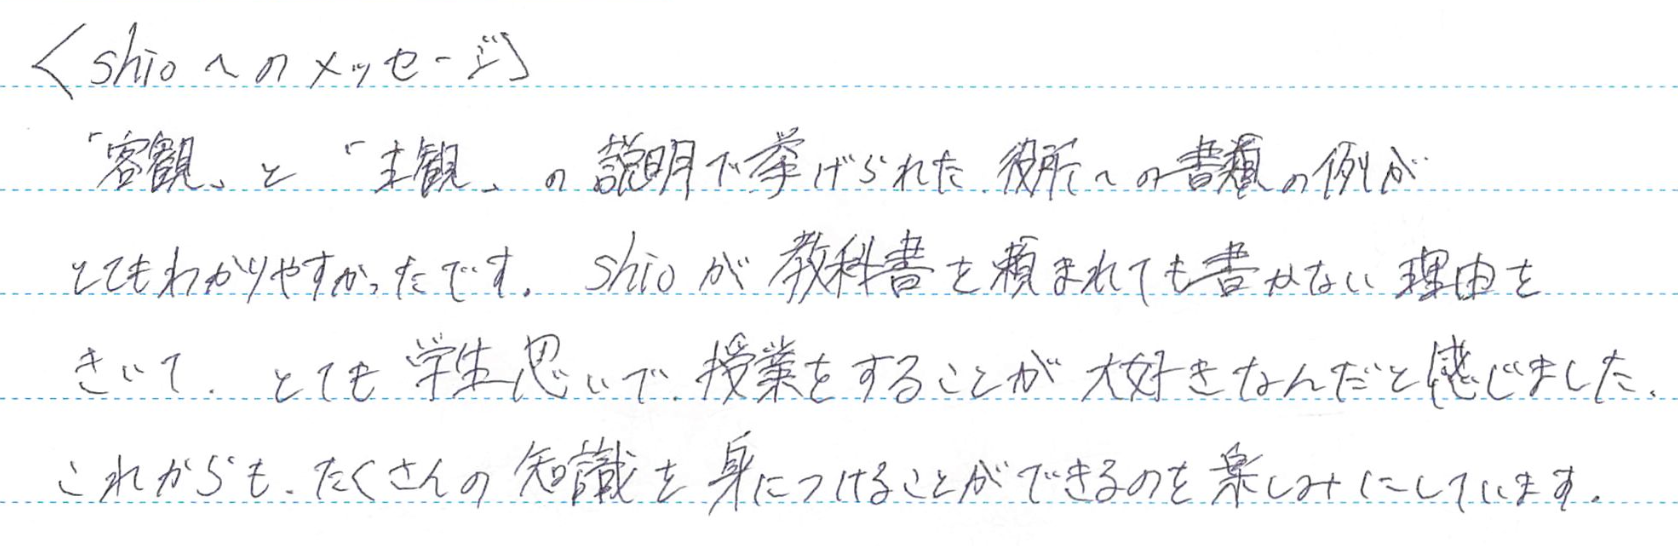 〈shioへのメッセージ〉
「客観」と「主観」の説明で挙げられた、役所への書類の例が
とてもわかりやすかったです。shioが教科書を頼まれても書かない理由を
きいて、とても学生思いで、授業をすることが大好きなんだと感じました。
これからも、たくさんの知識を身につけることができるのを楽しみにしています。